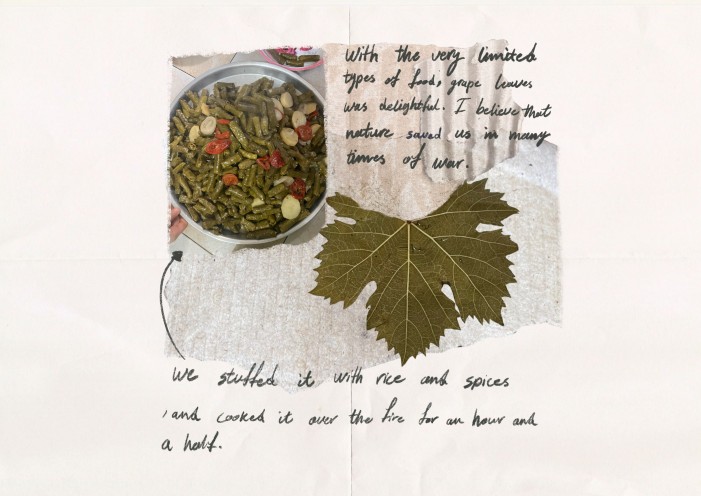 With the very limited
types of food, grape leaves
was delightful. I believe that
nature saved us in many
times of war.
We stuffed it with rice and spices
, and cooked it over the fire for an hour and
a half.